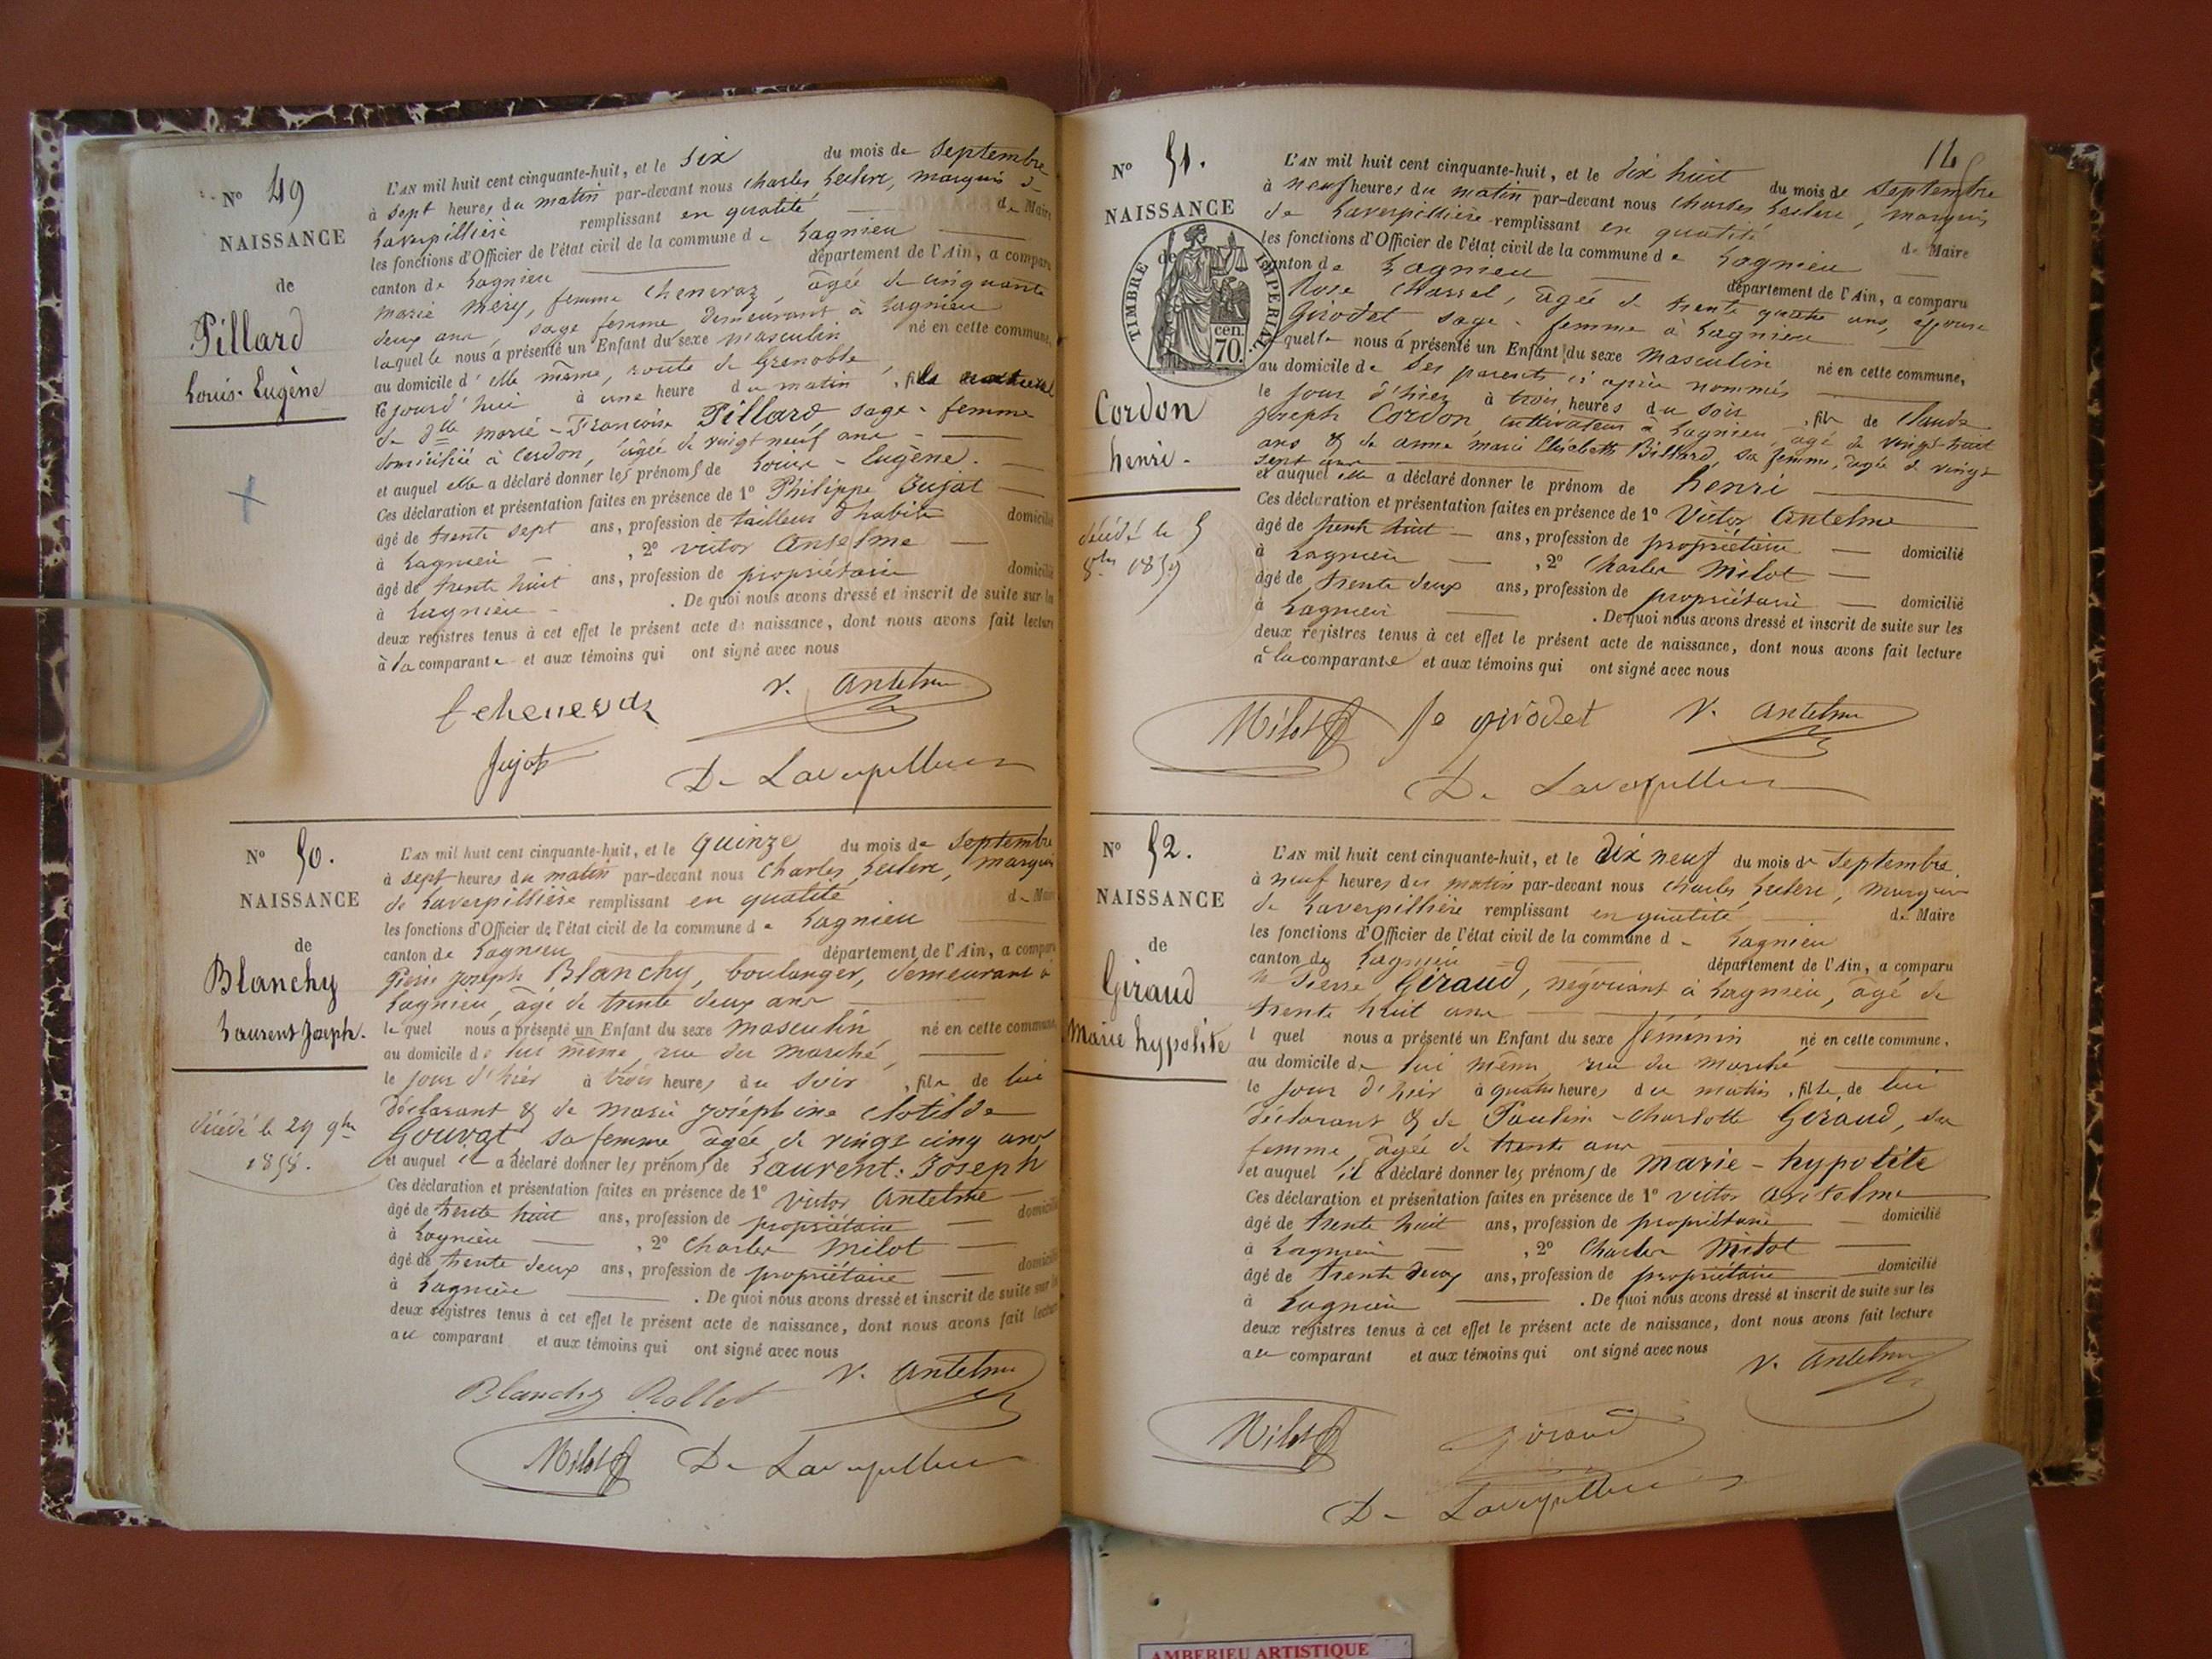 N° 49
NAISSANCE
de
Pillard
Louis-Eugène
L'AN mil huit cent cinquante-huit, et le six du mois de septembre
à sept heures du matin par-devant nous Charles Leclerc, marquis de
Laverpillière remplissant en qualité de Maire
les fonctions d'Officier de l'état civil de la commune de Lagnieu
canton de Lagnieu département de l'Ain, a comparu
marie mery, femme Cheneraz, âgée de cinquante
deux ans, sage femme demeurant à Lagnieu
laquelle nous a présenté un Enfant du sexe masculin né en cette commune,
au domicile d'elle même, route de Grenoble,
le jourd'hui à une heure du matin, fils naturel
de dlle marie-Françoise Pillard sage-femme
domiciliée à Cerdon, âgée de vingt neuf ans
et auquel elle a déclaré donner les prénoms de Louis-Eugène.
Ces déclaration et présentation faites en présence de 1° Philippe Jujat
âgé de trente sept ans, profession de tailleur d'habits domicilié
à Lagnieu, 2° victor Antelme
âgé de trente huit ans, profession de propriétaire domicilié
à Lagnieu. De quoi nous avons dressé et inscrit de suite sur les
deux registres tenus à cet effet le présent acte de naissance, dont nous avons fait lecture
à la comparante et aux témoins qui ont signé avec nous
f cheneraz V. Antelme
Jujat De Laverpilliere
N° 50.
NAISSANCE
de
Blanchy
Laurent Joseph.
décédé le 29 9bre
1858.
L'AN mil huit cent cinquante-huit, et le quinze du mois de septembre
à sept heures du matin par-devant nous Charles Leclerc, marquis
de Laverpillière remplissant en qualité de Maire
les fonctions d'Officier de l'état civil de la commune de Lagnieu
canton de Lagnieu département de l'Ain, a comparu
Pierre Joseph Blanchy, boulanger, demeurant à
Lagnieu, âgé de trente deux ans
lequel nous a présenté un Enfant du sexe masculin né en cette commune,
au domicile de lui même, rue du marché,
le jour d'hier à trois heures du soir, fils de lui
déclarant & de marie joséphine clotilde
Gouvat sa femme âgée de vingt cinq ans
et auquel il a déclaré donner les prénoms de Laurent-Joseph
Ces déclaration et présentation faites en présence de 1° Victor Antelme
âgé de trente huit ans, profession de propriétaire domicilié
à Lagnieu, 2° Charles Milot
âgé de trente deux ans, profession de propriétaire domicilié
à Lagnieu. De quoi nous avons dressé et inscrit de suite sur les
deux registres tenus à cet effet le présent acte de naissance, dont nous avons fait lecture
au comparant et aux témoins qui ont signé avec nous
Blanchy Rollet V. Antelme
Milot De Laverpilliere
N° 51.
NAISSANCE
de
TIMBRE IMPERIAL
cen.
70.
Cordon
henri-
décédé le 5
8bre 1859
L'AN mil huit cent cinquante-huit, et le dix huit du mois de septembre
à neuf heures du matin par-devant nous Charles Leclerc, marquis
de Laverpillière remplissant en qualité de Maire
les fonctions d'Officier de l'état civil de la commune de Lagnieu
canton de Lagnieu département de l'Ain, a comparu
Rose Chassel, âgée de trente quatre ans, épouse
Girodet sage-femme à Lagnieu
quelle nous a présenté un Enfant du sexe masculin né en cette commune,
au domicile de ses parents ci après nommés
le jour d'hier à trois heures du soir, fils de Claude
Joseph Cordon cultivateur à Lagnieu, âgé de vingt-huit
ans & de anne marie Elisabeth Billard, sa femme, âgée de vingt
sept ans
et auquel elle a déclaré donner le prénom de henri
Ces déclaration et présentation faites en présence de 1° Victor Antelme
âgé de trente huit ans, profession de propriétaire domicilié
à Lagnieu, 2° Charles Milot
âgé de trente deux ans, profession de propriétaire domicilié
à Lagnieu. De quoi nous avons dressé et inscrit de suite sur les
deux registres tenus à cet effet le présent acte de naissance, dont nous avons fait lecture
à la comparante et aux témoins qui ont signé avec nous
Milot fe girodet V. Antelme
De Laverpilliere
N° 52.
NAISSANCE
de
Giraud
Marie hypolite
L'AN mil huit cent cinquante-huit, et le dix neuf du mois de septembre
à neuf heures du matin par-devant nous Charles Leclerc, marquis
de Laverpillière remplissant en qualité de Maire
les fonctions d'Officier de l'état civil de la commune de Lagnieu
canton de Lagnieu département de l'Ain, a comparu
Pierre Giraud, négociant à Lagnieu, âgé de
trente huit ans
l quel nous a présenté un Enfant du sexe féminin né en cette commune,
au domicile de lui même, rue du marché
le jour d'hier à quatre heures du matin, fille de lui
déclarant & de Pauline-Charlotte Geraud, sa
femme, âgée de trente ans
et auquel il a déclaré donner les prénoms de marie-hypolite
Ces déclaration et présentation faites en présence de 1° victor antelme
âgé de trente huit ans, profession de propriétaire domicilié
à Lagnieu, 2° Charles Milot
âgé de trente deux ans, profession de propriétaire domicilié
à Lagnieu. De quoi nous avons dressé et inscrit de suite sur les
deux registres tenus à cet effet le présent acte de naissance, dont nous avons fait lecture
au comparant et aux témoins qui ont signé avec nous
V. Antelme
Milot Giraud
De Laverpilliere
AMBERIEU ARTISTIQUE